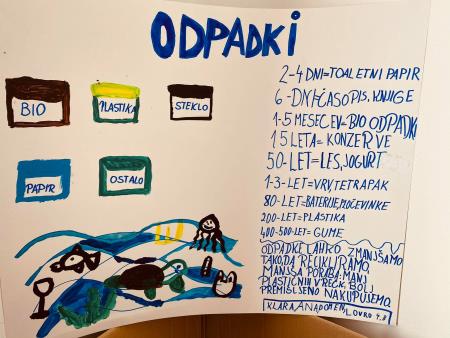 ODPADKI
BIO
PLASTIKA
STEKLO
PAPIR
OSTALO
2-4 DNI=TOALETNI PAPIR
6-DNI=ČASOPIS, KNJIGE
1-5 MESECEV=BIO ODPADKI
15 LETA=KONZERVE
50-LET=LES, JOGURT
1-3-LET=VRV, TETRAPAK
80-LET=BATERIJE, PLOČEVINKE
200-LET=PLASTIKA
400-500-LET=GUME
ODPADKE LAHKO ZMANJŠAMO
TAKO, DA RECIKLIRAMO,
MANJŠA PORABA: MANJ
PLASTIČNIH VREČK, BOLJ
PREMIŠLJENO NAKUPUJEMO.
KLARA, ANA
LOVRO 4.B